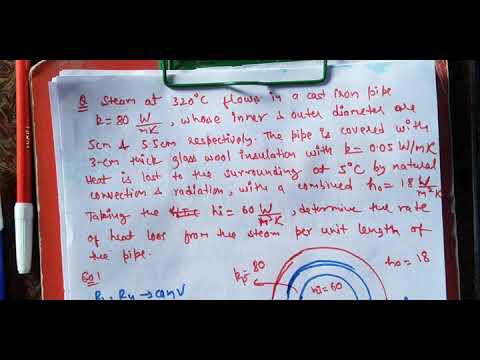 Q Steam at 320°C flows in a cast iron pipe
k = 80 W/mK, whose inner & outer diameter are
5cm & 5.5cm respectively. The pipe is covered with
3-cm thick glass wool insulation with k = 0.05 W/mK
Heat is lost to the surrounding at 5°C by natural
convection & radiation, with a combined ho = 18 W/m²K
Taking the hi = 60 W/m²K, determine the rate
of heat loss from the steam per unit length of
the pipe.
Sol
= 80
ho = 18
hi = 60
→ conv